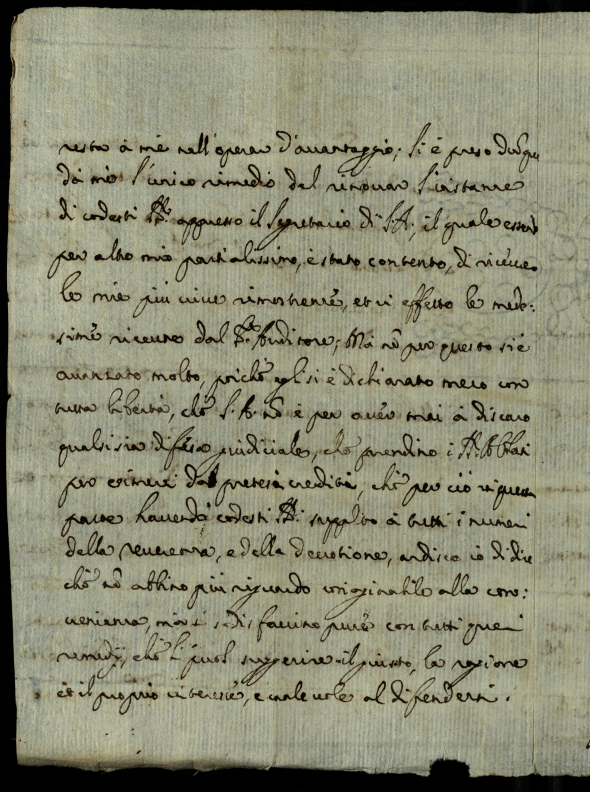 resta à me nell'operar d'avantaggio; Si è preso dunque
da me l'unico rimedio del rinovar l'instanze
di codesti SS.ri appresso il Segretario di S.A., il quale essendo
per altro mio partialissimo, è stato contento, di ricever
le mie più vive rimostranze, et in effetto le mede:
sime ricevute dal Auditore; Mà nõ per questo si è
avanzato molto, poiché egli si è dichiarato meco con
tutta libertà, chè S.A. nõ è per aver mai à discaro
qualsisia difesa giudiciale, che prendino i SS.ri Abbati
per esimersi dal preteso credito, chè per ciò in questa
parte havendo codesti SS.ri supplito à tutti i numeri
della reverenza, e della devotione, ardisco io di dire
chè nõ abbino più riguardo alla con:
venienza, mà si sodisfaccino pure con tutti quei
remedij, chè li puol suggerire il giusto, la ragione
et il proprio interesse, e valevole al difendersi.